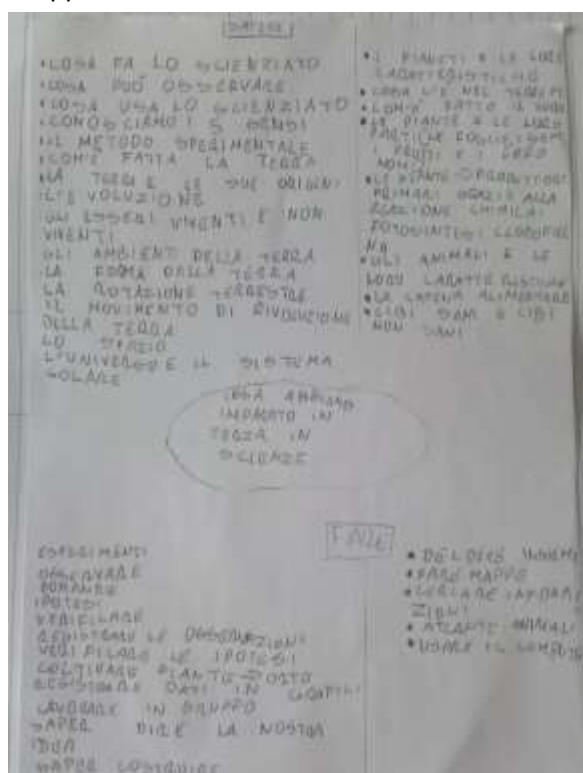 SAPERE
•COSA FA LO SCIENZIATO
•COSA PUÒ OSSERVARE
•COSA USA LO SCIENZIATO
•CONOSCIAMO I 5 SENSI
•IL METODO SPERIMENTALE
•COM'È FATTA LA TERRA
•LA TERRA E LE SUE ORIGINI
L'EVOLUZIONE
GLI ESSERI VIVENTI E NON
VIVENTI
GLI AMBIENTI DELLA TERRA
LA FORMA DELLA TERRA
LA ROTAZIONE TERRESTRE
IL MOVIMENTO DI RIVOLUZIONE
DELLA TERRA
LO SPAZIO
L'UNIVERSO E IL SISTEMA
SOLARE
•I PIANETI E LE LORO
CARATTERISTICHE
•COSA C'È NEL
•COM'È FATTO IL
•LE PIANTE E LE LORO
PARTI
I FRUTTI E I LORO
NOMI
•LE PIANTE PRODUTTORI
PRIMARI GRAZIE ALLA
REAZIONE CHIMICA:
FOTOSINTESI CLOROFILLIA
NA
•GLI ANIMALI E LE
LORO CARATTERISTICHE
•LA CATENA ALIMENTARE
•CIBI SANI E CIBI
NON SANI
COSA ABBIAMO
IMPARATO IN
TERZA IN
SCIENZE
FARE
ESPERIMENTI
OSSERVARE
DOMANDE
IPOTESI
VERIFICARE
REGISTRARE LE OSSERVAZIONI
VERIFICARE LE IPOTESI
COLTIVARE PIANTE-ORTO
REGISTRARE DATI IN
LAVORARE IN GRUPPO
SAPER DIRE LA NOSTRA
IDEA
SAPER COSTRUIRE
• DECIDERE INSIEME
• FARE MAPPE
• CERCARE INFORMA
ZIONI
• ATLANTE ANIMALI
• USARE IL COMPUTER